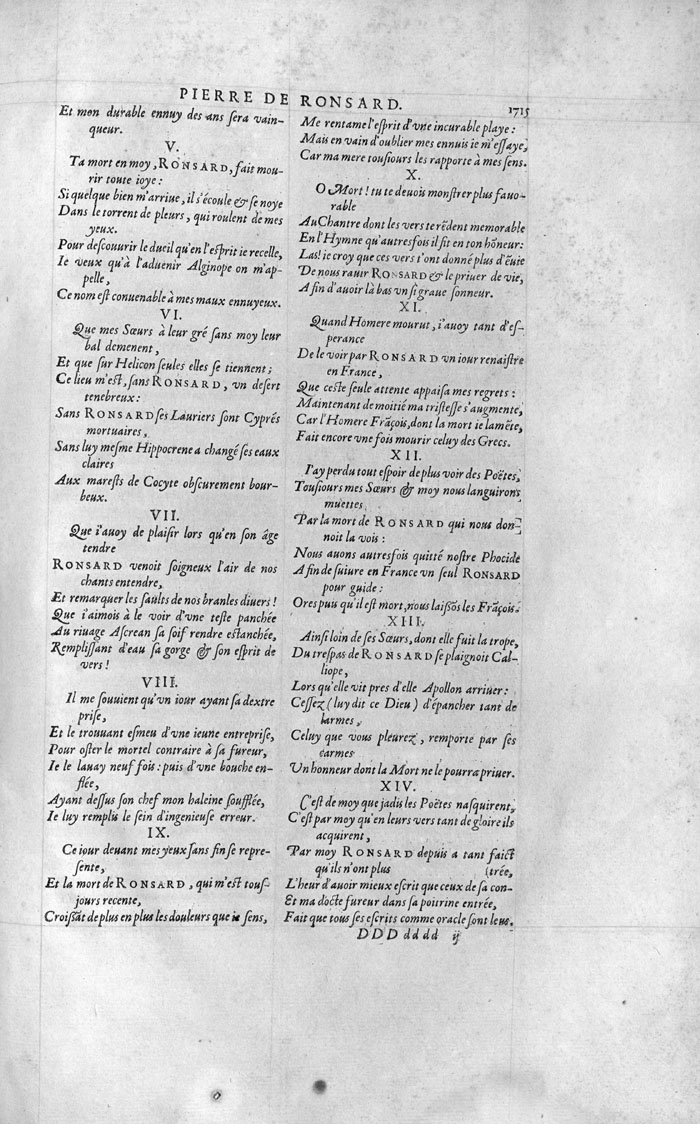 PIERRE DE RONSARD.
1715
Et mon durable ennuy des ans sera vain-
queur.
V.
Ta mort en moy, RONSARD, fait mou-
rir toute ioye:
Si quelque bien m'arriue, il s'écoule & se noye
Dans le torrent de pleurs, qui roulent de mes
yeux.
Pour descouurir le dueil qu'en l'esprit ie recelle,
Ie veux qu'à l'aduenir Alginope on m'ap-
pelle,
Ce nom est conuenable à mes maux ennuyeux.
VI.
Que mes Sœurs à leur gré sans moy leur
bal demenent,
Et que sur Helicon seules elles se tiennent;
Ce lieu m'est, sans RONSARD, vn desert
tenebreux:
Sans RONSARD ses Lauriers sont Cyprés
mortuaires,
Sans luy mesme Hippocrene a changé ses eaux
claires
Aux marests de Cocyte obscurement bour-
beux.
VII.
Que i'auoy de plaisir lors qu'en son âge
tendre
RONSARD venoit soigneux l'air de nos
chants entendre,
Et remarquer les saults de nos branles diuers!
Que i'aimois à le voir d'vne teste panchée
Au riuage Ascrean sa soif rendre estanchée,
Remplissant d'eau sa gorge & son esprit de
vers!
VIII.
Il me souuient qu'vn iour ayant sa dextre
prise,
Et le trouuant esmeu d'vne ieune entreprise,
Pour oster le mortel contraire à sa fureur,
Ie le lauay neuf fois: puis d'vne bouche en-
flée,
Ayant dessus son chef mon haleine soufflée,
Ie luy remplis le sein d'ingenieuse erreur.
IX.
Ce iour deuant mes yeux sans fin se repre-
sente,
Et la mort de RONSARD, qui m'est tous-
jours recente,
Croissãt de plus en plus les douleurs que ie sens,
Me rentame l'esprit d'vne incurable playe:
Mais en vain d'oublier mes ennuis ie m'essaye,
Car ma mere tousiours les rapporte à mes sens.
X.
O Mort! tu te deuois monstrer plus fauo-
rable
Au Chantre dont les vers te rẽdent memorable
En l'Hymne qu'autresfois il fit en ton hõneur:
Las! ie croy que ces vers t'ont donné plus d'ẽuie
De nous rauir RONSARD & le priuer de vie,
Afin d'auoir là bas vn si graue sonneur.
XI.
Quand Homere mourut, i'auoy tant d'es-
perance
De le voir par RONSARD vn iour renaistre
en France,
Que ceste seule attente appaisa mes regrets:
Maintenant de moitié ma tristesse s'augmente,
Car l'Homere Frãçois, dont la mort ie lamẽte,
Fait encore vne fois mourir celuy des Grecs.
XII.
I'ay perdu tout espoir de plus voir des Poëtes,
Tousiours mes Sœurs & moy nous languirons
muettes
Par la mort de RONSARD qui nous don-
noit la vois:
Nous auons autresfois quitté nostre Phocide
Afin de suiure en France vn seul RONSARD
pour guide:
Ores puu qu'il est mort, nous laissõs les Frãçois.
XIII.
Ainsi loin de ses Sœurs, dont elle fuit la trope,
Du trespas de RONSARD se plaignoit Cal-
liope,
Lors qu'elle vit pres d'elle Apollon arriuer:
Cessez (luy dit ce Dieu) d'épancher tant de
larmes,
Celuy que vous pleurez, remporte par ses
carmes
Vn honneur dont la Mort ne le pourra priuer.
XIV.
C'est de moy que jadis les Poëtes nasquirent,
C'est par moy qu'en leurs vers tant de gloire ils
acquirent,
Par moy RONSARD depuis a tant faict
qu'ils n'ont plus (trée,
L'heur d'auoir mieux escrit que ceux de sa con-
Et ma docte fureur dans sa poitrine entrée,
Fait que tous ses escrits comme oracle sont leus.
DDD dddd ij